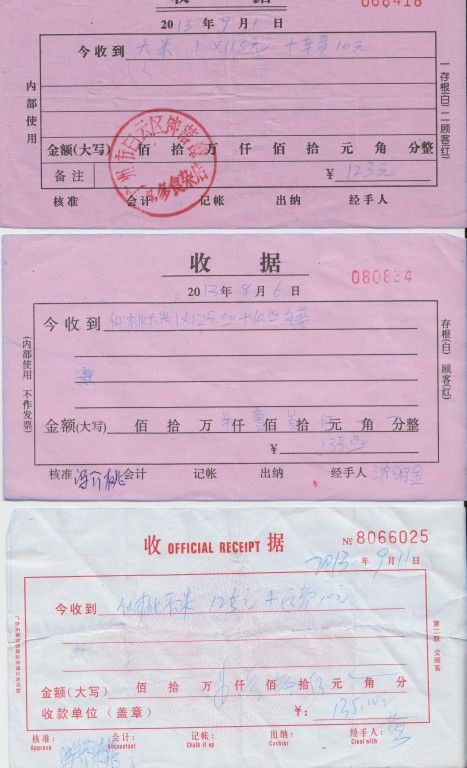 收 据
068418
2013年9月1日
今收到 大米 1×113元 + 车费10元
内部使用
一存根(白) 二顾客(红)
金额(大写) 佰 拾 万 仟 佰 拾 元 角 分整
备注 ¥ 123元
广州市白云区钟落潭
多食杂店
核准 会计 记帐 出纳 经手人
收 据
080834
2013年9月6日
今收到 仙桃大米1×125.00+10.00车费
(内部使用 不作发票)
存根(白) 顾客(红)
金额(大写) 佰 拾 万 仟 壹 佰 拾 元 角 分整
¥ 135.00
核准 冯介桃 会计 记帐 出纳 经手人
收 OFFICIAL RECEIPT 据 № 8066025
2013年9月11日
今收到 仙桃 米 125元 + 运费10元
第二联 交顾客
金额(大写) 佰 拾 万 仟 佰 拾 元 角 分
收款单位(盖章) ¥: 135.00
核准: 会计: 记帐: 出纳: 经手人: 黄
Approve Accountant Chalk it up Cashier Cleal with